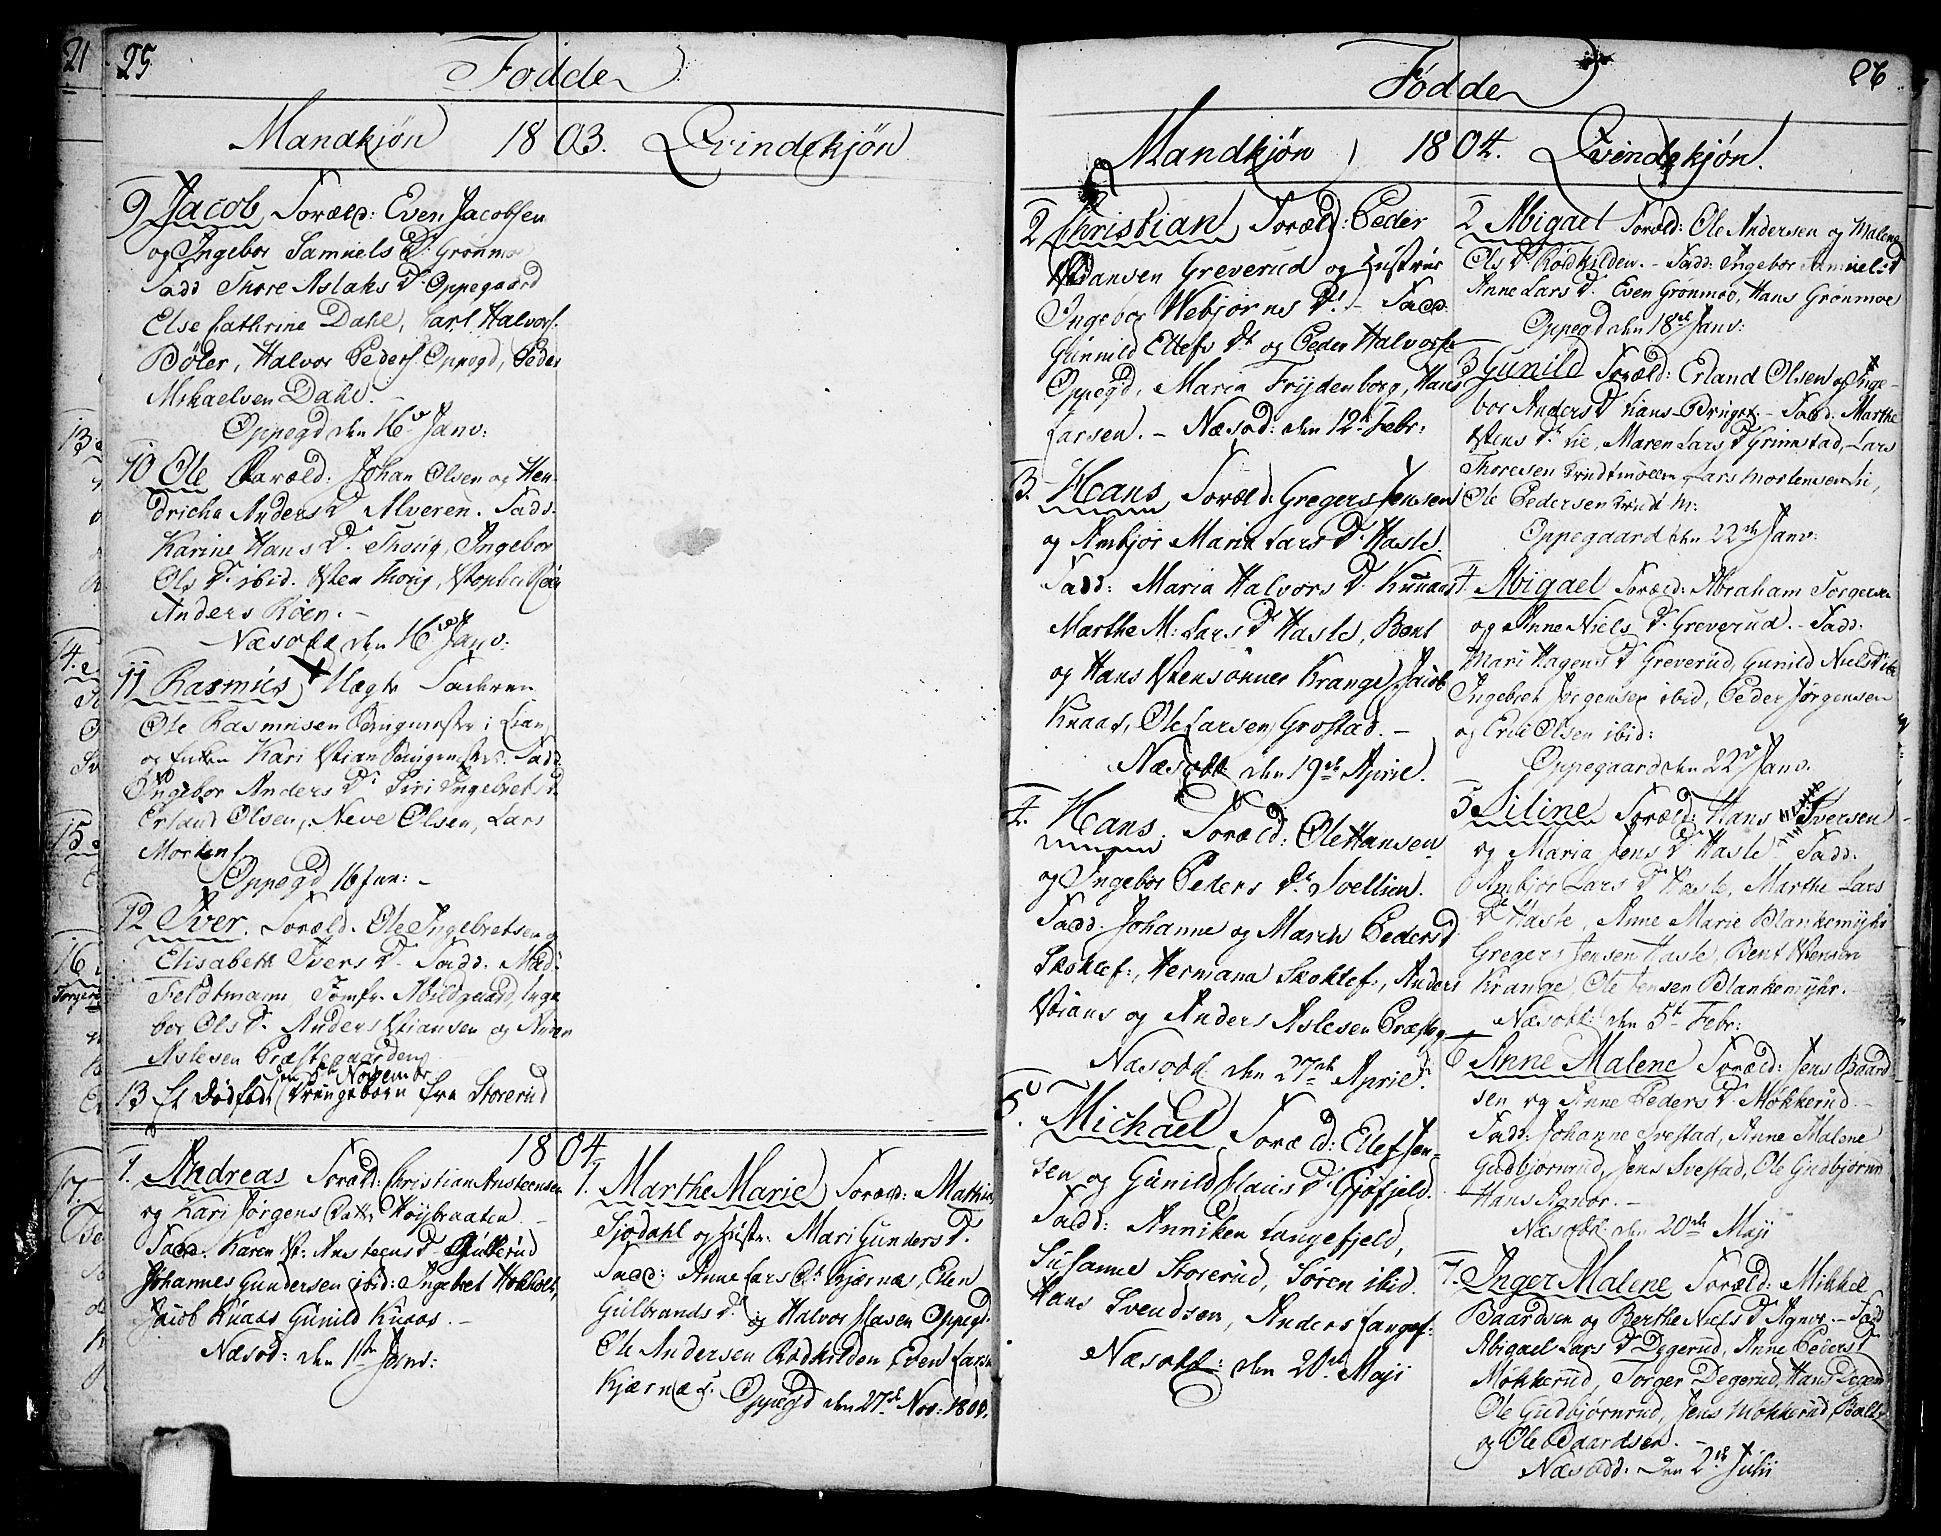 25
Fødde
Mandkjøn 1803. Qvindekjøn
9 Jacob, Foræld: Even Jacobsen
og Ingebor Samuels D. Grønmo
Fadd Thore Aslaks D. Oppegaard
Else Cathrine Dahl, Carl Halvors.
Bøler, Halvor Peders. Oppegd, Peder
Mikaelsen Dahl.
Oppegd den 16 Janv:
10 Ole Foræld: Johan Olsen og Hen-
dricha Anders D. Alveren. Fadd:
Karine Hans D. Thorig, Ingebor
Ols D. ibid. Sten Thorig,
Anders Röen. -
Næsodd den 16 Janv:
11 Rasmus, Uægte Faderen
Ole Rasmusen i Lian,
og Enken Kari Fadd
Ingebor Anders D. Siri Ingebrets D.
Erland Olsen, Neve Olsen, Lars
Mortens.
Oppegd 16 Jun: -
12 Iver. Foræld. Ole Ingebretsen og
Elisabeth Ivers D. Fadd: Mad:
Feldtmann, Jomfr. Mildgaard, Inge
bor Ols D. Anders Stiansen og
Aslesen Præstegaarden
den 5te Novembr
13 Et dødfød Drengebarn fra Storerud
1804.
1. Andreas Foræld: Christian Anstensen
og Kari Jørgens Datt, Høybraaten. -
Fadd. Karen St: Anstens D. Gütterud
Johannes Gundersen ibid: Ingebret Hokholt,
Jacob Knaas Gunild Knaas. -
Næsod: den 1te Janv:
1. Marthe Marie Foræld: Mathis
Sjødahl og Hustr. Mari Gunders D.
Fadd: Anne Lars D. Kjærnæs, Elen
Gulbrands D. og Halvor Clasen Oppegd.
Ole Andersen Rödkilden Even Larsn
Kjærnæs. Oppegd den 27de Nov: 1803.
26
Fødde
Mandkjøn 1804. Qvindekjøn.
2 Christian Foræld: Peder
Hansen Greverud og Hustrue
Ingebor Webjørns D. - Fadd:
Gunnild Ellefs D. og Peder Halvorsen
Oppegd, Maria Frydenborg, Hans
Larsen. - Næsod: den 12te Febr:
3. Hans, Foræld: Gregers Jensen
og Ambjør Maria Lars D. Hasle.
Fadd: Maria Halvors D. Knaas
Marthe M: Lars D. Hasle, Bent
og Hans Stensønner Krange, Jacob
Knaas, Ole Larsen Grostad. -
Næsodd den 19de April.
4. Hans. Foræld: Ole Hansen
og Ingebor Peders D. Svellien.
Fadd: Johanne og Maren Peders D.
Skoklef:, Hermana Skoklef:, Anders
Stians og Anders Aslesen Præsteg
Næsodd den 27de April.
5. Michael Foræld: Ellef Jen-
sen og Gunild Claus D. Gjøfjeld.
Fadd: Anniken Langefjeld,
Susanne Storerud, Søren ibid.
Hans Svendsen, Anders Langef:
Næsodd: den 20de Maji
2 Abigael Foræld: Ole Andersen og Malene
Ols D. Rödkilden. - Fadd: Ingebor Samuels D
Anne Lars D. Even Grønmoe, Hans Grønmoe
Oppegd den 18de Janv:
3 Gunild Foræld: Erland Olsen og Inge-
bor Anders D. Hans-Briget. - Fadd: Marthe
Stens D. Lie, Maren Lars D. Grimstad, Lars
Thoresen Trudtmøllen Lars Mortensen Li,
Ole Pedersen Trudt M:
Oppegaard den 22de Janv:
4 Abigael Foræld: Abraham Torgersen
og Anne Niels D. Greverud. - Fadd:
Mari Hagens D. Greverud, Gunild Niels D. ibd
Ingebret Jørgensen ibid, Peder Jørgensen
og Erik Olsen ibid:
Oppegaard den 22 Janv.
5 Siline Foræld: Hans Iversen
og Maria Jens D. Hasle Fadd:
Ambjør Lars D. Hasle, Marthe Lars
D. Hasle, Anne Marie Blankemyhr
Gregers Jensen Hasle, Bent Stensen
Krange, Ole Jensen Blankemyhr. -
Næsodd: den 5te Febr:
6 Anne Malene Foræld: Jens Baard
sen og Anne Peders D. Møkkerud. -
Fadd: Johanne Svestad, Anne Malene
Gudbjørnrud, Jens Svestad, Ole Gudbjørnrud
Hans Agnor. -
Næsodd den 20de Maji
7. Inger Malene Foræld: Mikkel
Baardsen og Berthe Niels D. Agnor. - Fadd
Abigael Lars D. Degerud, Anne Peders D
Møkkerud, Torger Degerud, Hans Degerud
Ole Gudbjørnrud, Jens Møkkerud,
og Ole Baardsen. -
Næsodd: den 2de Julii
21
13
14.
15
16
17.